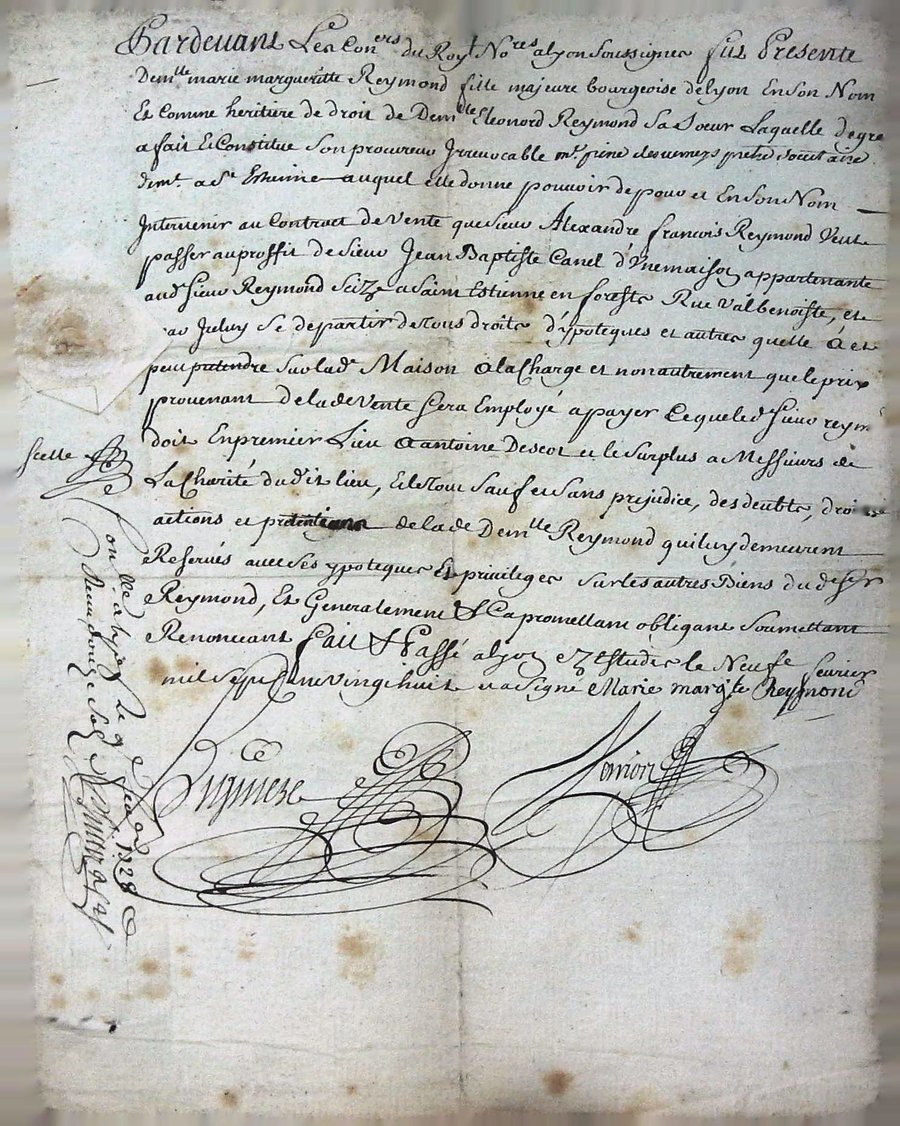 Pardevant Les Con.ers du Roy No.res a lyon soussignes fut Presente
Dem.lle marie margueritte Reymond fille majeure bourgeoise de lyon En son Nom
Et comme heritiere de droit de Dem.lle Eleonord Reymond sa soeur Laquelle de gre
a fait & Constitue son procureur Irrevocable m.re prêtre societaire
a St. Estienne auquel elle donne pouvoir de pour et En son Nom
Intervenir au Contract de Vente que sieur Alexandre francois Reymond Veut
passer au proffit de sieur Jean Baptiste Canel d'Une maison appartenante
aud sieur Reymond Seize a Saint Estienne en forests Rue Valbenoiste, et
au Jceluy se departir de tous droits d'ypoteques et autres quelle a et
peut pretendre sur lad.e Maison a la Charge et non autrement que le prix
provenant de lad.e Vente sera Employé a payer Ce que led sieur reym.d
doit En premier Lieu a antoine Descot et le Surplus a Messieurs de
La Charité dudit lieu, Et le tout sauf et sans prejudice, des deubts, droits
actions et pretentions de lad.e Dem.lle Reymond qui luy demeurent
Reservés avec ses ypoteques Et privileges sur les autres Biens dud sieur
Reymond, Et Generalement &Ca promettant obligeant soumettant
Renoncant fait & Passé a lyon ez Estudes le Neufe fevrier
mil sept Cent vingt huit et a signé Marie marg.te Reymond
scellé
Con.llé a lyon le 9 1728
douze sols